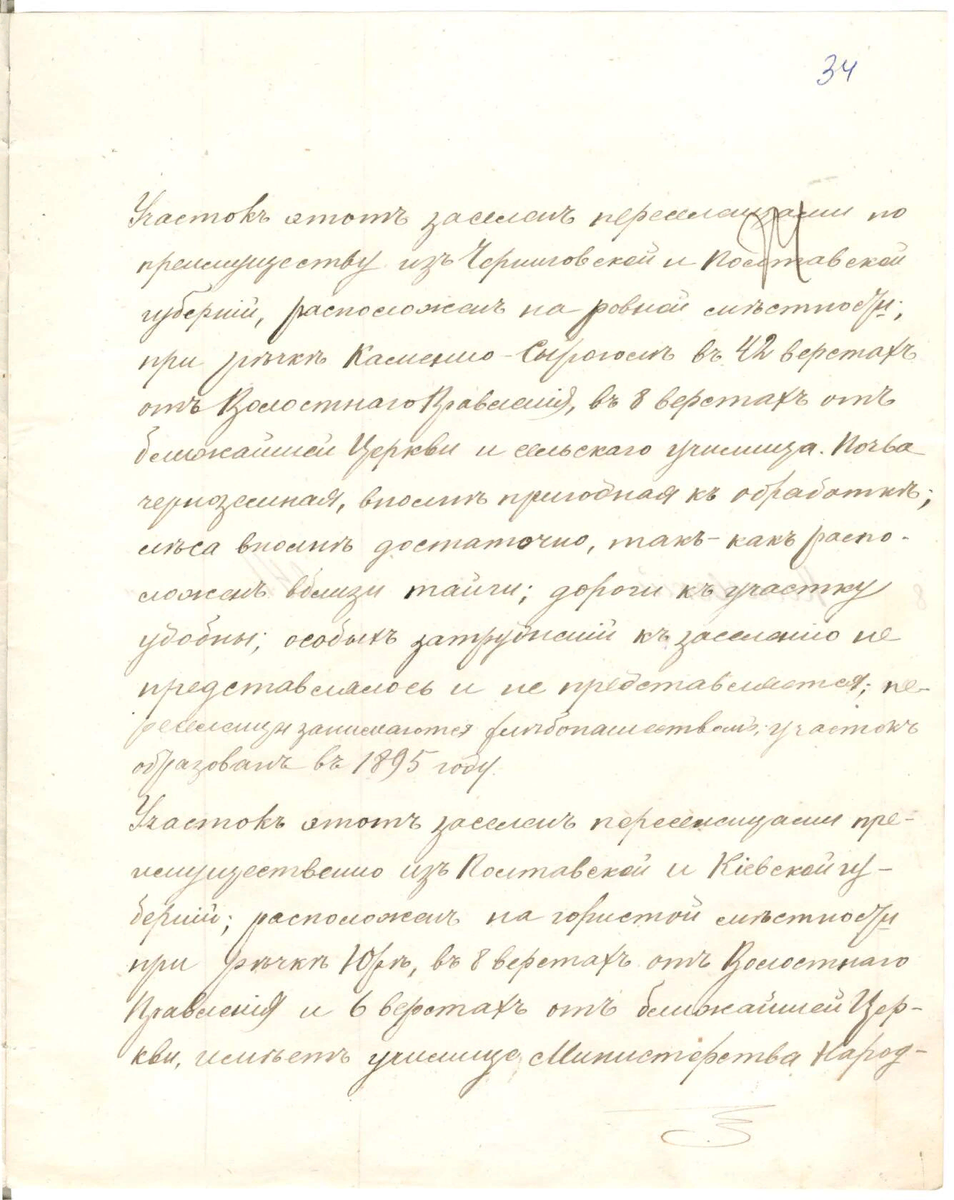 34
Участокъ этотъ заселенъ переселенцами по
преимуществу изъ Черниговской и Полтавской
губерній, расположенъ на ровной мѣстности;
при рѣчкѣ Каменно-Сыромъ въ 42 верстахъ
отъ Волостнаго Правленія, въ 8 верстахъ отъ
ближайшей Церкви и сельскаго училища. Почва
черноземная, вполнѣ пригодная къ обработкѣ;
лѣса вполнѣ достаточно, такъ-какъ распо-
ложенъ вблизи тайги; дороги къ участку
удобны; особыхъ затрудненій къ заселенію не
представлялось и не представляется; пе-
реселенцы занимаются хлѣбопашествомъ; участокъ
образованъ въ 1895 году.
Участокъ этотъ заселенъ переселенцами пре-
имущественно изъ Полтавской и Кіевской гу-
берній; расположенъ на гористой мѣстности
при рѣчкѣ Юрѣ, въ 8 верстахъ отъ Волостнаго
Правленія и 6 верстахъ отъ ближайшей Цер-
кви, имѣетъ училище Министерства Народ-